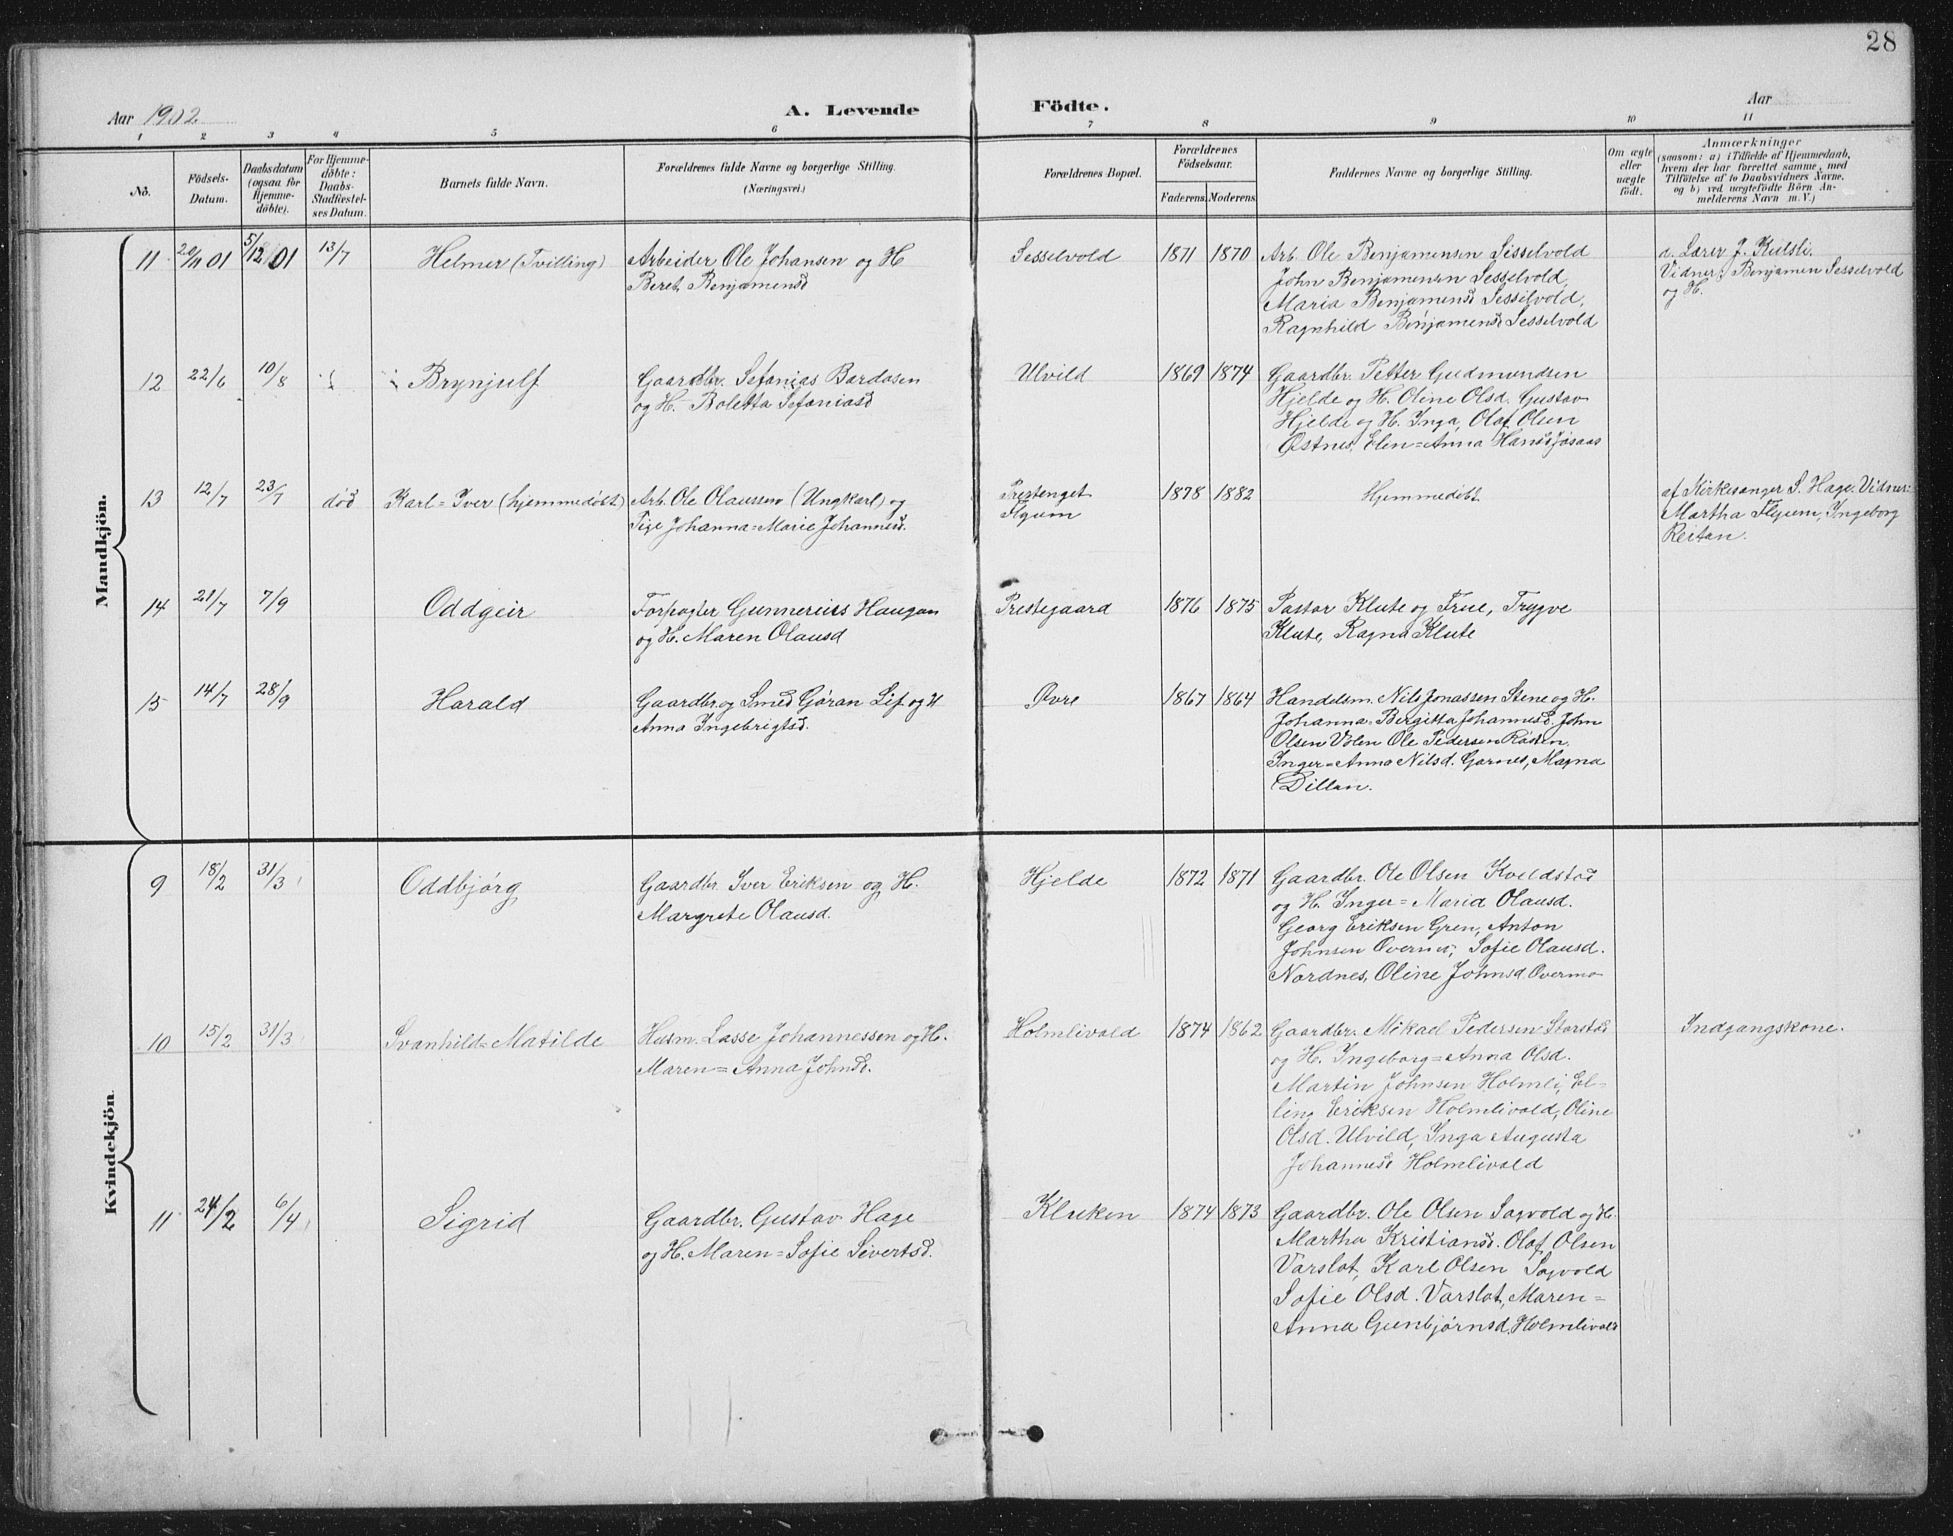 28
Aar 1902
A. Levende Födte.
Aar
1 2 3 4 5 6 7 8 9 10 11
No.
Födsels-
Datum.
Daabsdatum
(ogsaa for
Hjemme-
døbte).
For Hjemme-
døbte:
Daabs-
Stadfæstel-
ses Datum.
Barnets fulde Navn.
Forældrenes fulde Navne og borgerlige Stilling.
(Næringsvei.)
Forældrenes Bopæl.
Forældrenes
Födselsaar.
Faderens. Moderens.
Faddernes Navne og borgerlige Stilling.
Om ægte
eller
uægte
født.
Anmærkninger
(saasom: a) i Tilfælde af Hjemmedaab,
hvem der har forrettet samme, med
Tilföielse af to Daabsvidners Navne,
og b) ved uægtefödte Börn An-
melderens Navn m. V.)
Mandkjön.
11 20/11 01 5/12 01 13/7 Helmer (Tvilling)
Arbeider Ole Johansen og H
Beret Benjamensd
Sesselvold 1871 1870
Arb. Ole Benjamensen Sesselvold
John Benjamensen Sesselvold,
Maria Benjamensd Sesselvold,
Ragnhild Benjamensd Sesselvold
a. Lærer J. Kulsli.
Vidner: Benjamen Sesselvold
og H.
12 22/6 10/8 Brynjulf
Gaardbr. Sefanias Bardosen
og H. Boletta Sefaniasd
Ulvild 1869 1874
Gaardbr. Petter Gudmundsen
Hjelde og H. Oline Olsd. Gustav
Hjelde og H. Inga, Olaf Olsen
Østnes, Elen=Anna
13 12/7 23/7 død Karl=Iver (hjemmedøbt)
Arb. Ole Olaussen (Ungkarl) og
Pige Johanna=Marie Johannesd.
Prestenget
Flyum
1878 1882
Hjemmedöbt
af Kirkesanger S. Hage. Vidner:
Martha Flyum, Ingeborg
Reitan.
14 21/7 7/9 Oddgeir
Forpagter Gunnerius Haugan
og H. Maren Olausd
Prestegaard 1876 1875
Pastor Klute og Frue, Trygve
Klute, Ragna Klute
15 14/7 28/9 Harald
Gaardbr. og Smed Gøran Lif og H
Anna Ingebrigtsd.
Øvre 1867 1864
Handelsm. Nils Jonassen Stene og H.
Johanna=Bergitta Johannesd. John
Olsen Volen Ole Pedersen
Inger=Anna Nilsd. Garnes, Magna
Dillan.
Kvindekjön.
9 18/2 31/3 Oddbjørg
Gaardbr. Iver Eriksen og H.
Margrete Olausd.
Hjelde 1872 1871
Gaardbr. Ole Olsen Kveldstad
og H. Inger=Maria Olausd.
Georg Eriksen Gren, Anton
Johnsen Overmo, Sofie Olausd.
Nordnes, Oline Johnsd Overmo
10 15/2 31/3 Svanhild=Matilde
Husm. Lasse Johannessen og H.
Maren=Anna Johnsd.
Holmlivald 1874 1862
Gaardbr. Mikael Pedersen Storstad
og H. Ingeborg=Anna Olsd.
Martin Johnsen Holmli, El-
ling Eriksen Holmlivald, Oline
Olsd. Ulvild, Inga Augusta
Johannesd Holmlivald
Indgangskone.
11 24/2 6/4 Sigrid
Gaardbr. Gustav Hage
og H. Maren=Sofie Sivertsd.
Kluken 1874 1873
Gaardbr. Ole Olsen Sagvold og H.
Martha Kristiansd. Olaf Olsen
Varslot, Karl Olsen Sagvold
Sofie Olsd. Varslot, Maren=
Anna Gunbjørnsd. Holmlivald